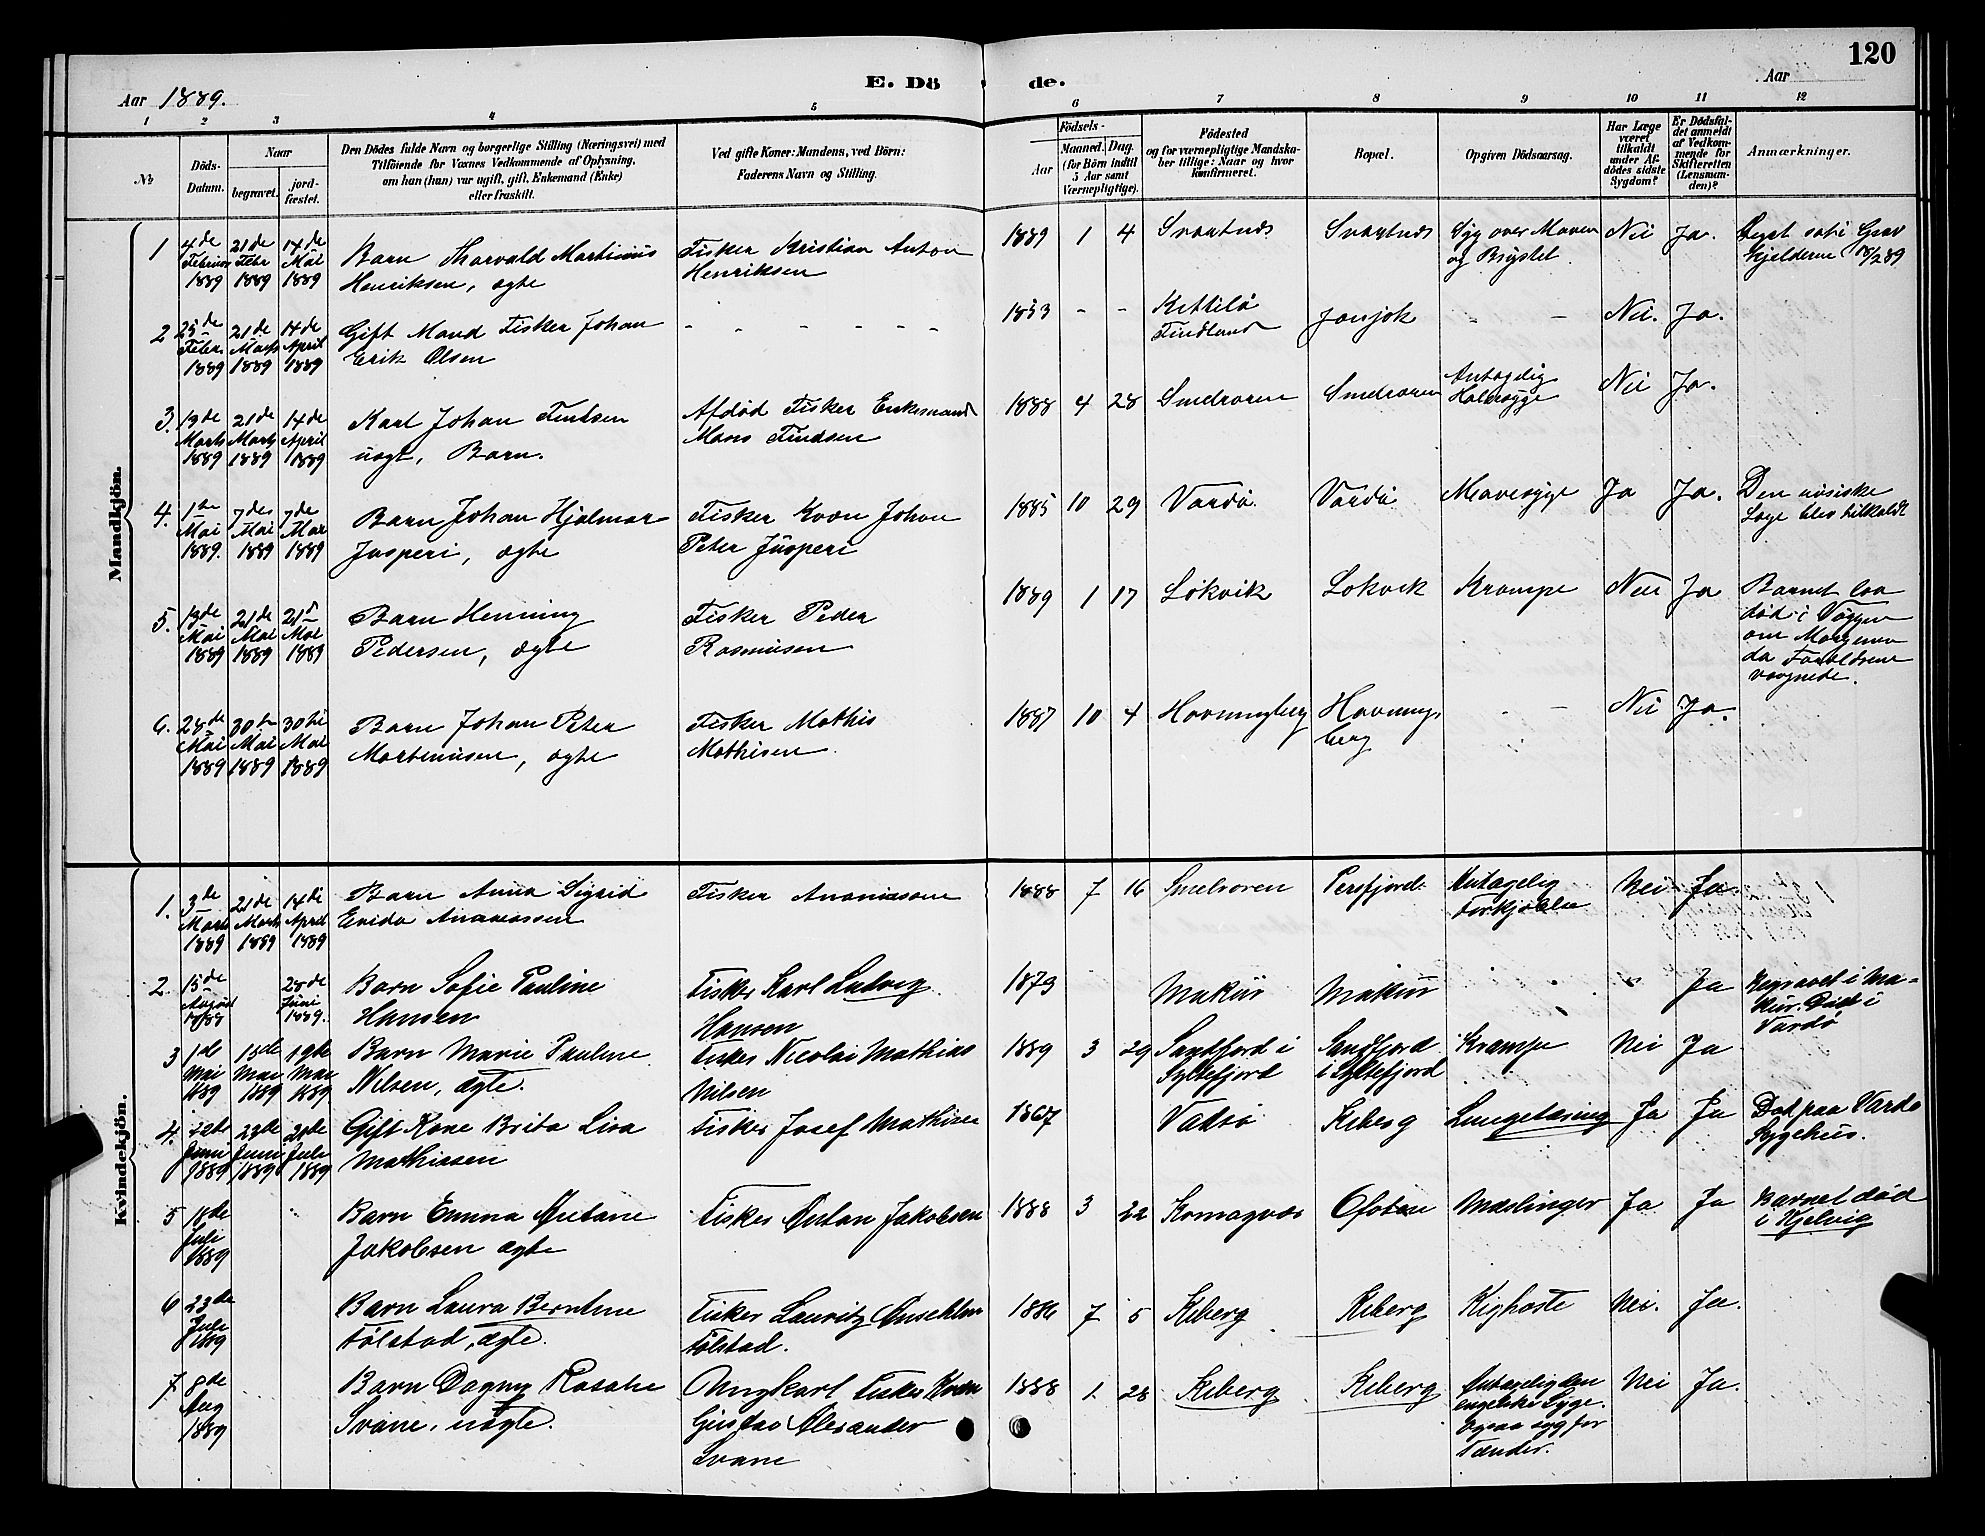 120
E. Dö de.
Aar 1889.
Aar
1 2 3 4 5 6 7 8 9 10 11 12
№
Döds-
Datum.
Naar
begravet.
jord-
fæstet.
Den Dödes fulde Navn og borgerlige Stilling (Næringsvei) med
Tilföiende for Voxnes Vedkommende af Oplysning,
om han (hun) var ugift, gift, Enkemand (Enke)
eller fraskilt.
Ved gifte Koner: Mandens, ved Börn:
Faderens Navn og Stilling.
Födsels-
Aar
Maaned. Dag.
(for Börn indtil
5 Aar samt
Værnepligtige).
Födested
og for værnepligtige Mandska-
ber tillige: Naar og hvor
konfirmeret.
Bopæl.
Opgiven Dödsaarsag.
Har Læge
været
tilkaldt
under Af-
dödes sidste
Sygdom?
Er Dödsfal-
det anmeldt
af Vedkom-
mende for
Skifteretten
(Lensman-
den)?
Anmærkninger.
Mandkjön.
1 4de Februar 1889 21de Febr 1889 14de Mai 1889
Barn Thorvald Martinius
Henriksen, ægte
Fisker Kristian Anton
Henriksen
1889 1 4 Svartnæs Svartnæs
Syg over Maven
og Brystet
Nei Ja.
2 25de Febr. 1889 21de Marts 1889 14de April 1889
Gift Mand Fisker Johan
Erik Olsen
- - - - - - -
1853 - - Kittilä
Findland
Jonjok - - Nei. Ja.
3. 19de Marts 1889 21de Marts 1889 14de April 1889
Karl Johan Findsen
uægt, Barn.
Afdød Fisker Enkemand
Mons Findsen
1888 4 28 Smelroren Smelroren
Antagelig
Halssyge
Nei Ja.
4. 1te Mai 1889. 7de Mai 1889 7de Mai 1889
Barn Johan Hjalmar
Jusperi, ægte
Fisker Kvæn Johan
Peter Jusperi
1885 10 29 Vardø. Vardø. Mavesyge Ja Ja.
Den russiske
Læge blev tilkaldt
5. 19de Mai 1889 21de Mai 1889 21de Mai 1889
Barn Henning
Pedersen, ægte
Fisker Peder
Rasmusen
1889 1 17 Løkvik Løkvik Krampe Nei Ja
Barnet laa
død i Vøggen
om Morgenen
da Forældrene
vaagnede.
6. 28de Mai 1889 30te Mai 1889 30te Mai 1889
Barn Johan Peter
Martinusen, ægte
Fisker Mathis
Mathisen.
1887 10 4 Havningberg Havning-
berg
- - Nei Ja.
Kvindekjön.
1. 3de Marts 1889 21de Marts 1889 14de April 1889
Barn Anna Sigrid
Evida Ananiassen
Fisker Ananiassen
1888 7 16 Smelroren Persfjord.
Antagelig
Forkjølelse
Nei Ja.
2. 15de 28de Juni 1889.
Barn Sofie Pauline
Hansen
Fisker Karl Ludvig
Hanson
1879 Makur Makur Ja
Begravet i Ma-
kur. Død i
Vardø
3 1de Mai 1889 15de Mai 1889 19de Mai 1889
Barn Marie Pauline
Nilsen, ægte.
Fisker Nicolai Mathias
Nilsen
1889 3 29 Sandfjord i
Syltefjord
Sandfjord
i Syltefjord
Krampe Nei Ja
4. Juni 1889 28de Juni 1889 28de Juli 1889
Gift Kone Brita Lisa
Mathiasen
Fisker Josef Mathisen
1867 Vadsø Kiberg Lungetæring Ja Ja
Død paa Vardø
Sygehus.
5 11de Juli 1889
Barn Emma
Jakobsen ægte
Fisker Jakobsen
1888 3 22 Komagvær Ofoten Mæslinger Ja Ja
Barnet død
i Kjelvig
6 23de Juli 1889
Barn Laura Berntine
Følstad, ægte.
Fisker Lauritz
Følstad.
1886 7 5 Kiberg Kiberg Kighoste Nei. Ja.
7 8de Aug 1889
Barn Dagny Rosalie
Svane, uægte.
Ungkarl Fisker Kvæn
Gustav Alexander
Svane
1888 1 28 Kiberg Kiberg
Antagelig den
engelske Syge.
Ogsaa syg for
Tænder.
Nei Ja.